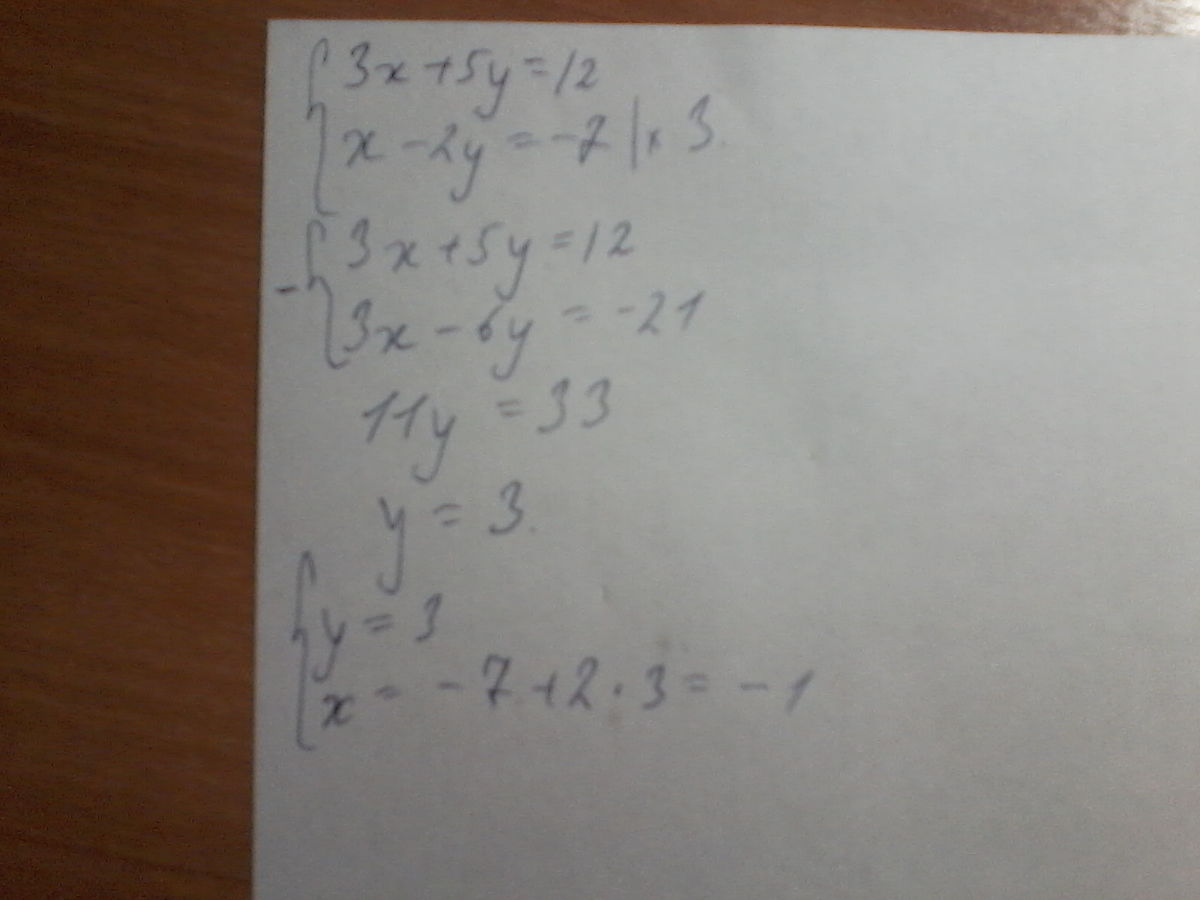 3x+5y=12
x-2y=-7 |×3.
3x+5y=12
- 3x-6y=-21
11y=33
y=3.
y=3
x=-7+2·3=-1